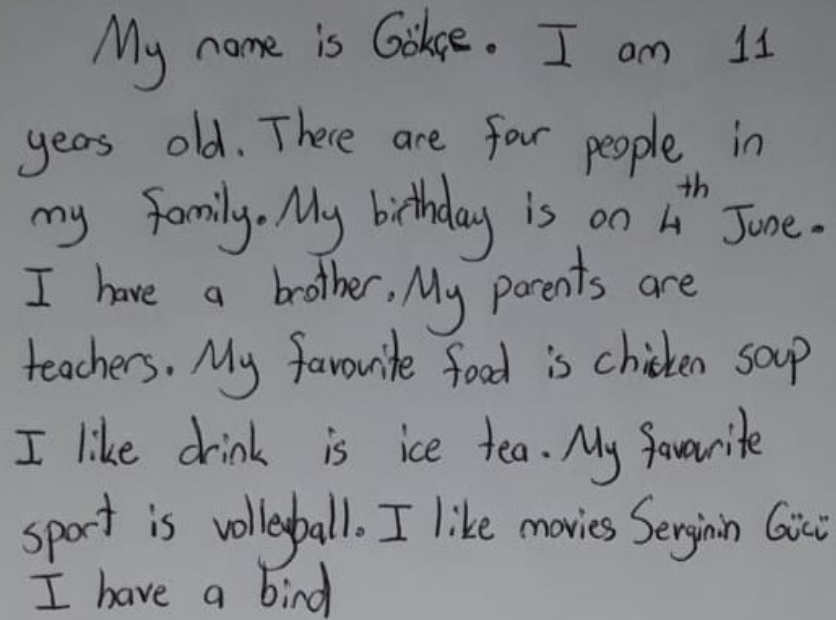 My name is Gökçe. I am 11
years old. There are four people in
my family. My birthday is on 4th June.
I have a brother. My parents are
teachers. My favourite food is chicken soup
I like drink is ice tea. My favourite
sport is volleyball. I like movies Serginin Gücü
I have a bird